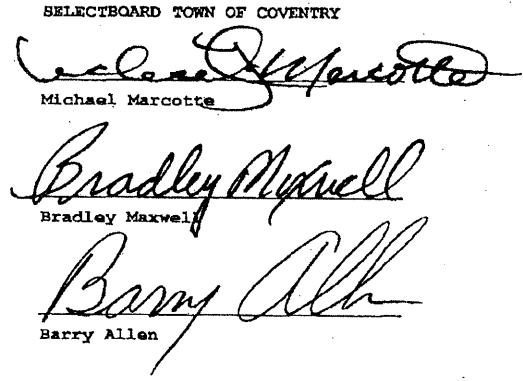 SELECTBOARD TOWN OF COVENTRY
Michael J. Marcotte
Michael Marcotte
Bradley Maxwell
Bradley Maxwell
Barry Allen
Barry Allen